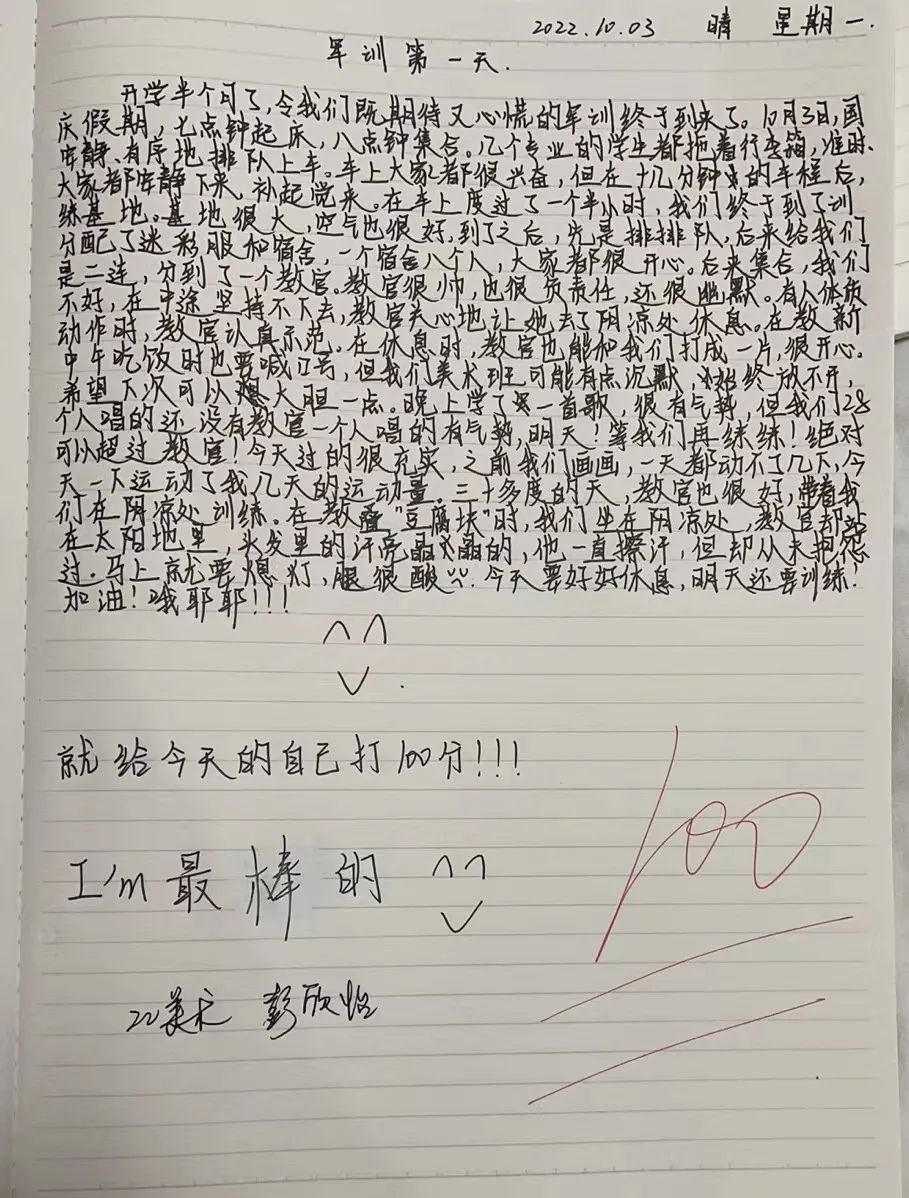 2022.10.03 晴 星期一.
军训第一天.
开学半个月了,令我们既期待又心慌的军训终于到来了。10月3日,国
庆假期,七点钟起床,八点钟集合。几个专业的学生都拖着行李箱,准时、
安静、有序地排队上车。车上大家都很兴奋,但在十几分钟的车程后,
大家都安静下来,补起觉来。在车上度过了一个半小时,我们终于到了训
练基地。基地很大,空气也很好,到了之后,先是排排队,后来给我们
分配了迷彩服和宿舍,一个宿舍八个人,大家都很开心。后来集合,我们
是二连,分到了一个教官。教官很帅,也很负责任,还很幽默。有人体质
不好,在中途坚持不下去,教官关心地让她去了阴凉处休息。在教新
动作时,教官认真示范。在休息时,教官也能和我们打成一片,很开心。
中午吃饭时也要喊口号,但我们美术班可能有点沉默,始终放不开,
希望下次可以大胆一点。晚上学了一首歌,很有气势,但我们28
个人唱的还没有教官一个人唱的有气势,明天!等我们再练练!绝对
可以超过教官!今天过的很充实,之前我们画画,一天都动不了几下,今
天一下运动了我几天的运动量。三十多度的天,教官也很好,带着我
们在阴凉处训练。在教叠“豆腐块”时,我们坐在阴凉处,教官却站
在太阳地里,头发里的汗亮晶晶的,他一直擦汗,但却从未抱怨
过.马上就要熄灯,腿很酸.今天要好好休息,明天还要训练!
加油!哦耶耶!!!
就给今天的自己打100分!!!
100
I'm最棒的
22美术 彭欣怡